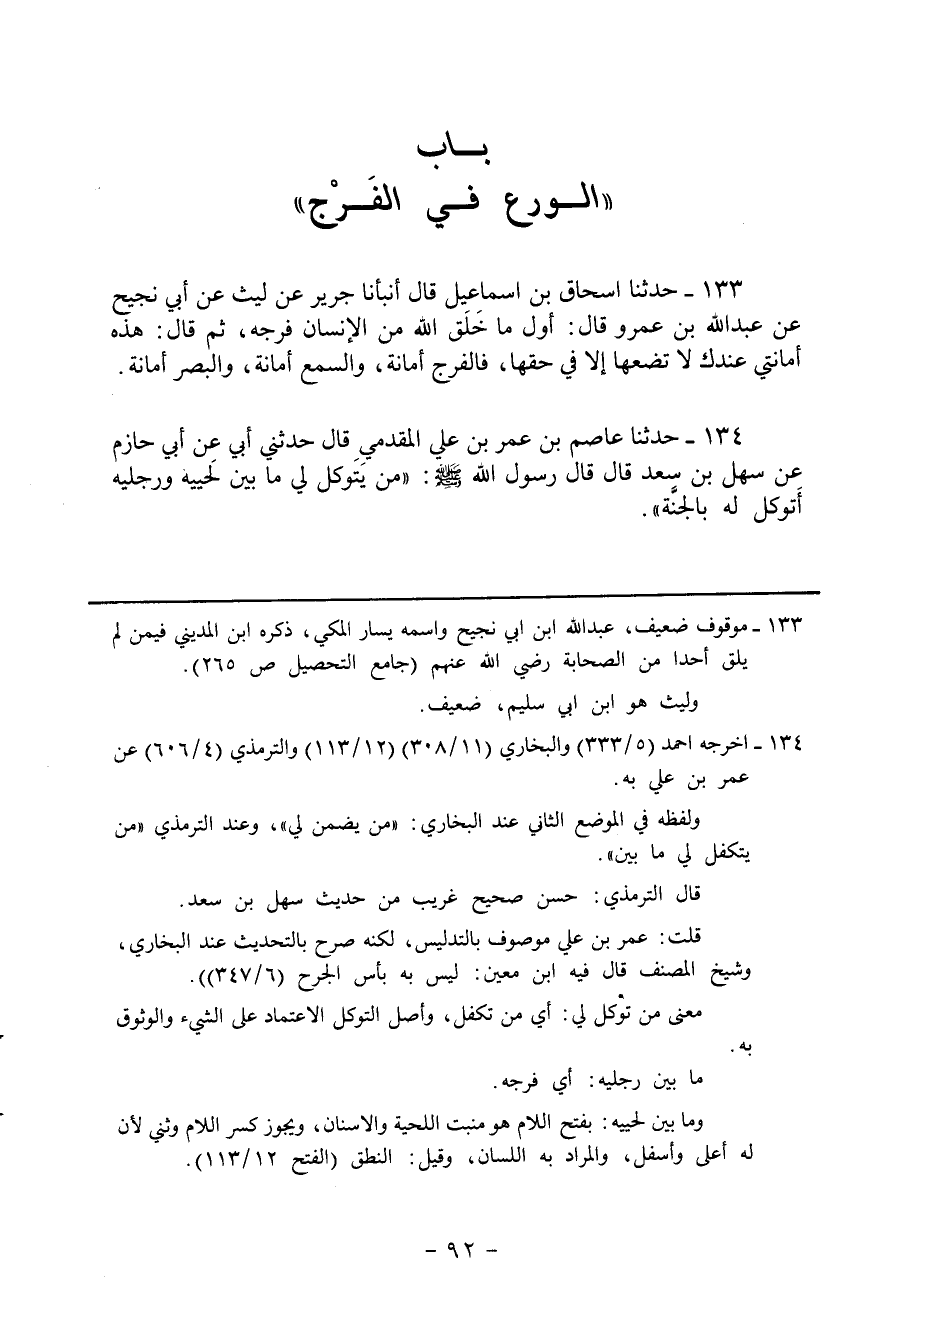 بــاب
«الــورع فــي الفَــرْج»
١٣٣ ـ حدثنا اسحاق بن اسماعيل قال أنبأنا جرير عن ليث عن أبي نجيح
عن عبدالله بن عمرو قال: أول ما خَلَق الله من الإنسان فرجه، ثم قال: هذه
أمانتي عندك لا تضعها إلا في حقها، فالفرج أمانة، والسمع أمانة، والبصر أمانة.
١٣٤ ـ حدثنا عاصم بن عمر بن علي المقدمي قال حدثني أبي عن أبي حازم
عن سهل بن سعد قال قال رسول الله ﷺ: «من يَتَوكل لي ما بين لَحييه ورجليه
أَتوكل له بالجنَّة».
١٣٣ ـ موقوف ضعيف، عبدالله ابن ابي نجيح واسمه يسار المكي، ذكره ابن المديني فيمن لم
يلق أحدا من الصحابة رضي الله عنهم (جامع التحصيل ص ٢٦٥).
وليث هو ابن ابي سليم، ضعيف.
١٣٤ ـ اخرجه احمد (٣٣٣/٥) والبخاري (٣٠٨/١١) (١١٣/١٢) والترمذي (٦٠٦/٤) عن
عمر بن علي به.
ولفظه في الموضع الثاني عند البخاري: «من يضمن لي»، وعند الترمذي «من
يتكفل لي ما بين».
قال الترمذي: حسن صحيح غريب من حديث سهل بن سعد.
قلت: عمر بن علي موصوف بالتدليس، لكنه صرح بالتحديث عند البخاري،
وشيخ المصنف قال فيه ابن معين: ليس به بأس الجرح (٣٤٧/٦)).
معنى من توكل لي: أي من تكفل، وأصل التوكل الاعتماد على الشيء والوثوق
به.
ما بين رجليه: أي فرجه.
وما بين لحييه: بفتح اللام هو منبت اللحية والاسنان، ويجوز كسر اللام وثني لأن
له أعلى وأسفل، والمراد به اللسان، وقيل: النطق (الفتح ١١٣/١٢).
- ٩٢ -